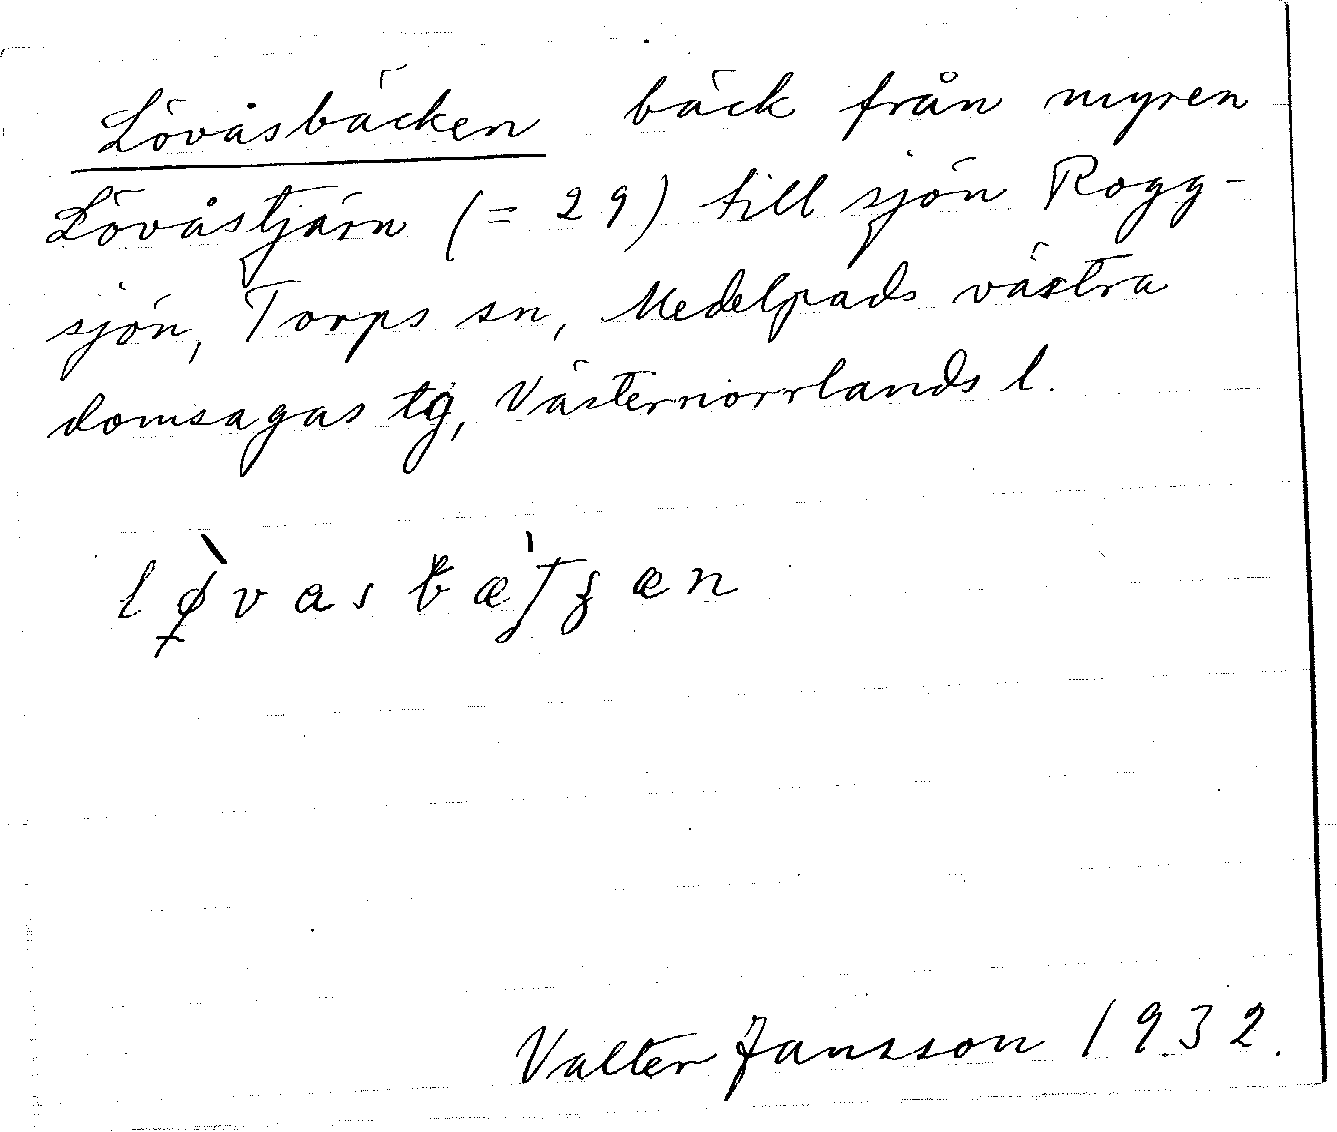 Lövåsbäcken bäck från myren
Lövåstjärn (= 29) till sjön Rogg-
sjön, Torps sn, Medelpads västra
domsagas tg, Västernorrlands l.
Valter Jansson 1932.